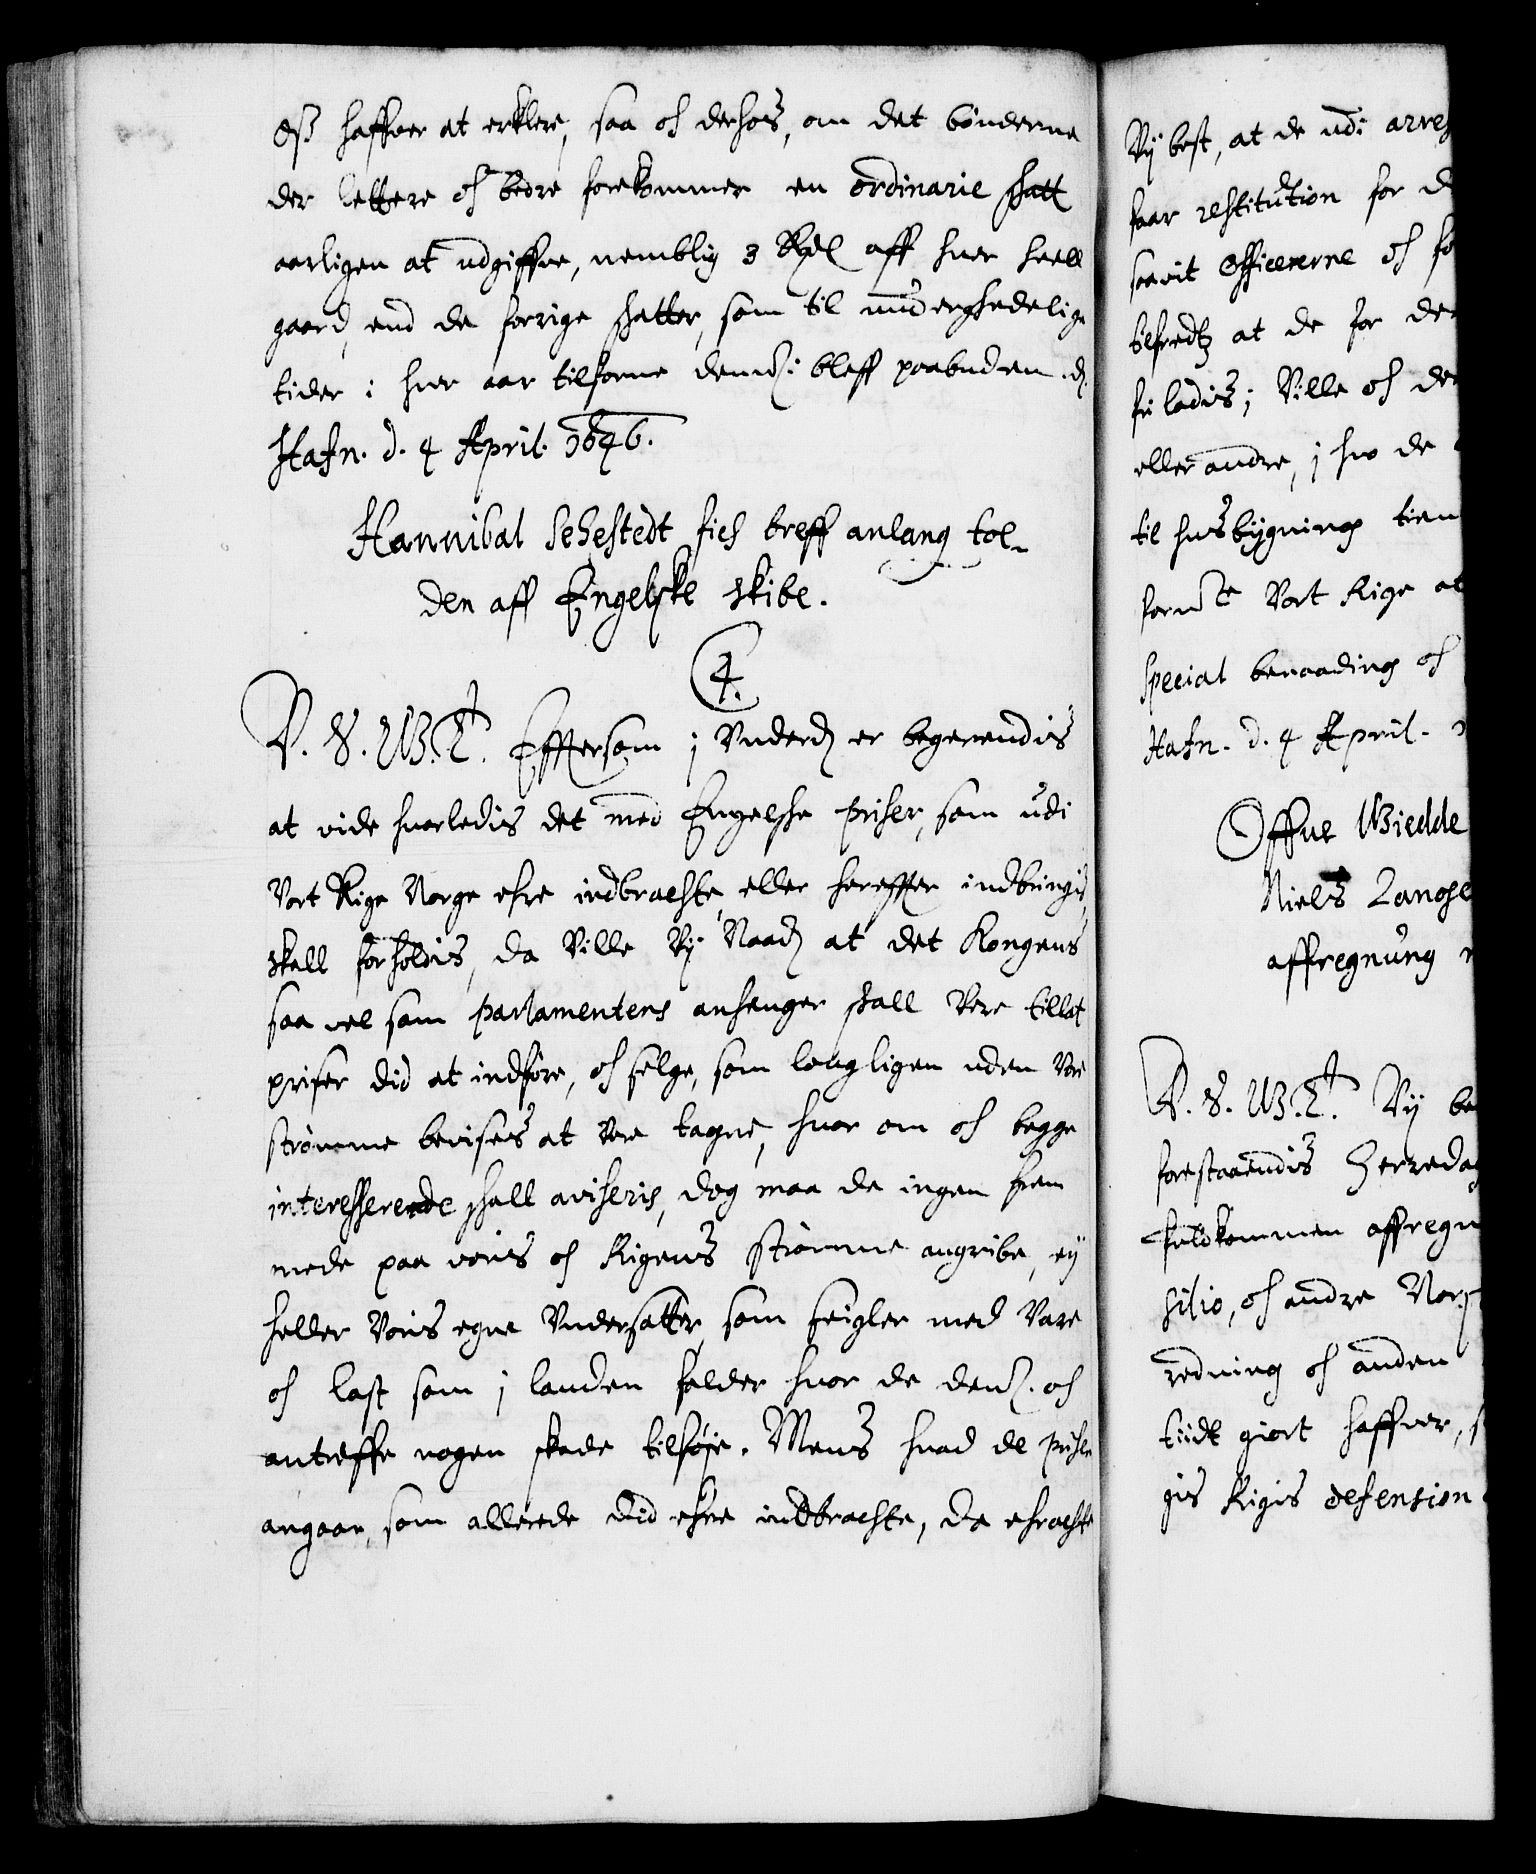 Oß haffver at erklere, saa oc derhos, om det bønderne
der lettere oc bedre forekommer en ordinarie skatt
aarligen at udgiffve, nemblig 3 Rdl aff hver heell
gaard, end de forrige skatter, som til underschedelige
tider i hver aar tilforne dennem bleff paabuden. d.
Hafn. d. 4 April. 1646.
Hannibal Sehestedt fich breff anlang tol-
den aff Engelske skibe.
4.
V. S. W. T. Efftersom j Underd er begerendis
at vide hvorledis det med Engelske priser, som udi
Vort Rige Norge ehre indbrachte, eller hereffter indbringis,
skall forholdis, da Ville Vij Naad at det Kongens
saa vel som parlamentens anhenger skall Vere tillat
priser did at indføre, oc selge, som lougligen uden Vore
strømme bevises at Vere tagne, hvor om oc begge
interesserende skall aviseris, dog maa de ingen frem
mede paa voris oc Rigens strømme angribe, ej
heller Voris egne Undersatter, som seigler med Vare
oc last som j landen falder hvor de denn. oc
antreffe nogen skade tilføje. Mens hvad de priser
angaar, som allerede did ehre indbrachte, da ehrachte
Vij best, at de udi arres
faar restitution for d
saavit Officererne oc fo
tilfredtz at de for de
fri ladis; Ville oc de
eller andre, j hvo de
til husbygning tien
form te Vort Rige at
special benaading oc
Hafn. d. 4 April.
Offve Giedde
Niels Lange
affregnung
V. S. W. T. Vij be
forestaaendis Herreda
fuldkommen affregn
silio, oc andre Nor
redning oc anden
tiidt giort haffver, s
gis Rigis defension